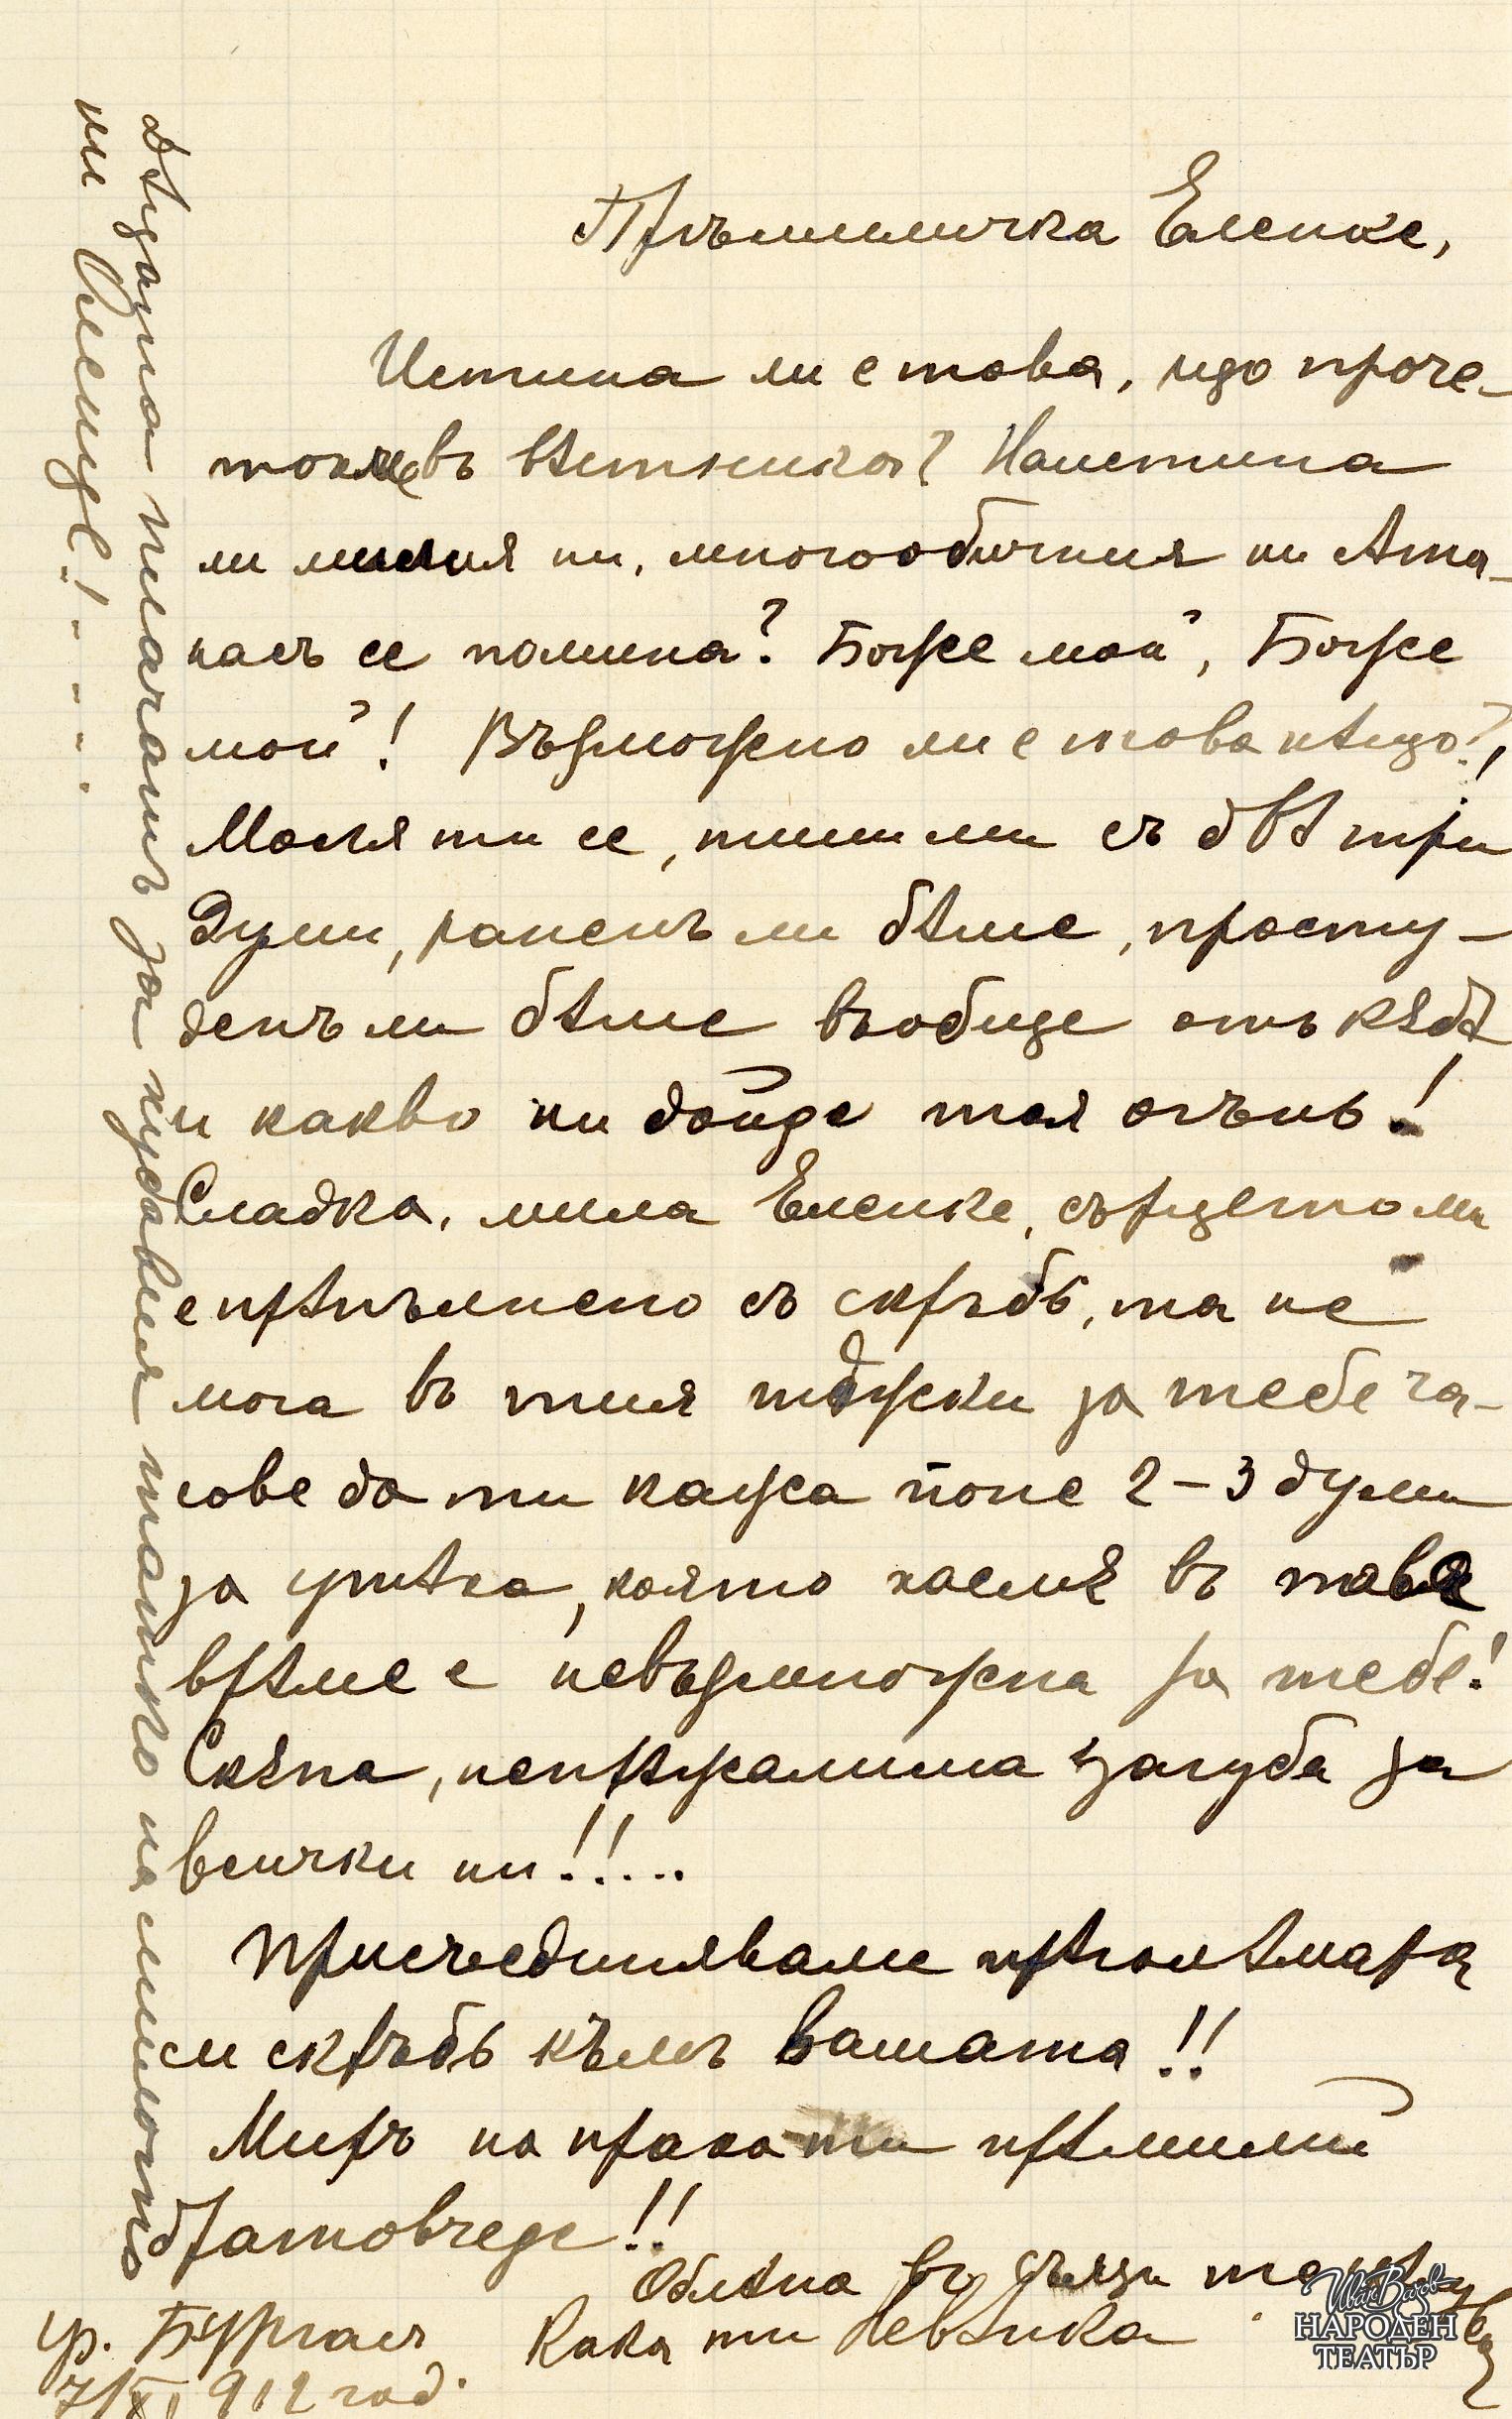 Прѣмиличка Еленке,
Истина ли е това, що проче-
токме въ вѣтника? Наистина
ли милия ни, многообичния ни Ата-
насъ се помина? Боже мой, Боже
мой! Възможно ли е това нѣщо?!
Моля ти се, пиши ми съ двѣ три
думи, раненъ ли бѣше, просту-
денъ ли бѣше въобще отъ кѫдѣ
и какво ни дойде тоя огънь!
Сладка, мила Еленке, сърцето ми
е прѣпълнено съ скръбь, та не
мога въ тия тѫжки за тебе ча-
сове да ти кажа поне 2-3 думи
за утѣха, която насмѣ въ това
врѣме е невъзможна за тебе!
Скѫпа, непрѣжалима загуба за
всички ни!!...
Присъединяваме прѣголѣмата
си скръбь къмъ вашата!!
Миръ на праха ти прѣмилий
братовчеде!!
Облѣна въ сълзи
Кака ти Невѣнка
гр. Бургасъ
7/XI 912 год.
Дѣцата плачатъ за хубавия татко на милото
ни Оленце!....
Иван Вазов
НАРОДЕН
ТЕАТЪР